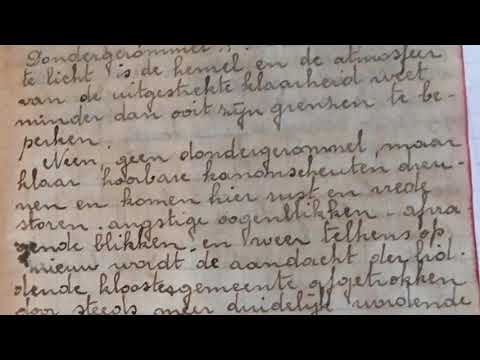 Dondergerommel?..
te licht is de hemel en de atmosfeer
van de uitgestrekte klaarheid weet
minder dan ooit zijn grenzen te be-
perken.
Neen, geen dondergerommel, maar
klaar hoorbare kanonscheuten dreu-
nen en komen hier rust en vrede
storen. angstige oogenblikken - afvra
gende blikken. en weer telkens op
nieuw wordt de aandacht der bid-
dende kloostergemeente afgetrokken
door steeds meer duidelijk wordende